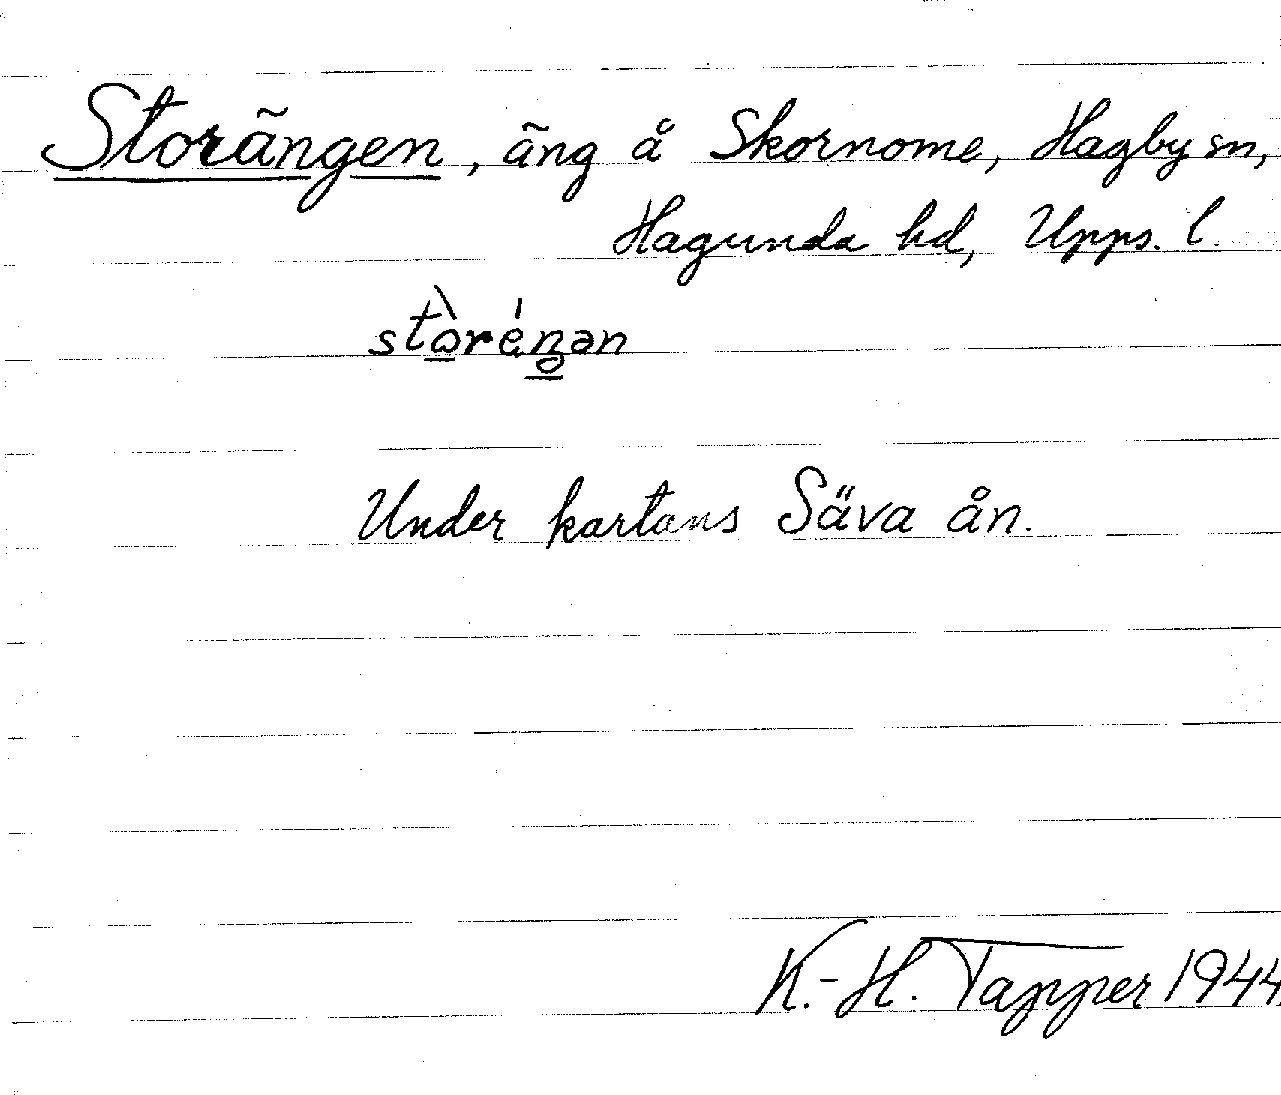 Storängen, äng å Skornome, Hagby sn,
Hagunda hd, Upps. l.
stòréŋən
Under kartans Säva ån.
K.-H. Tapper 1944